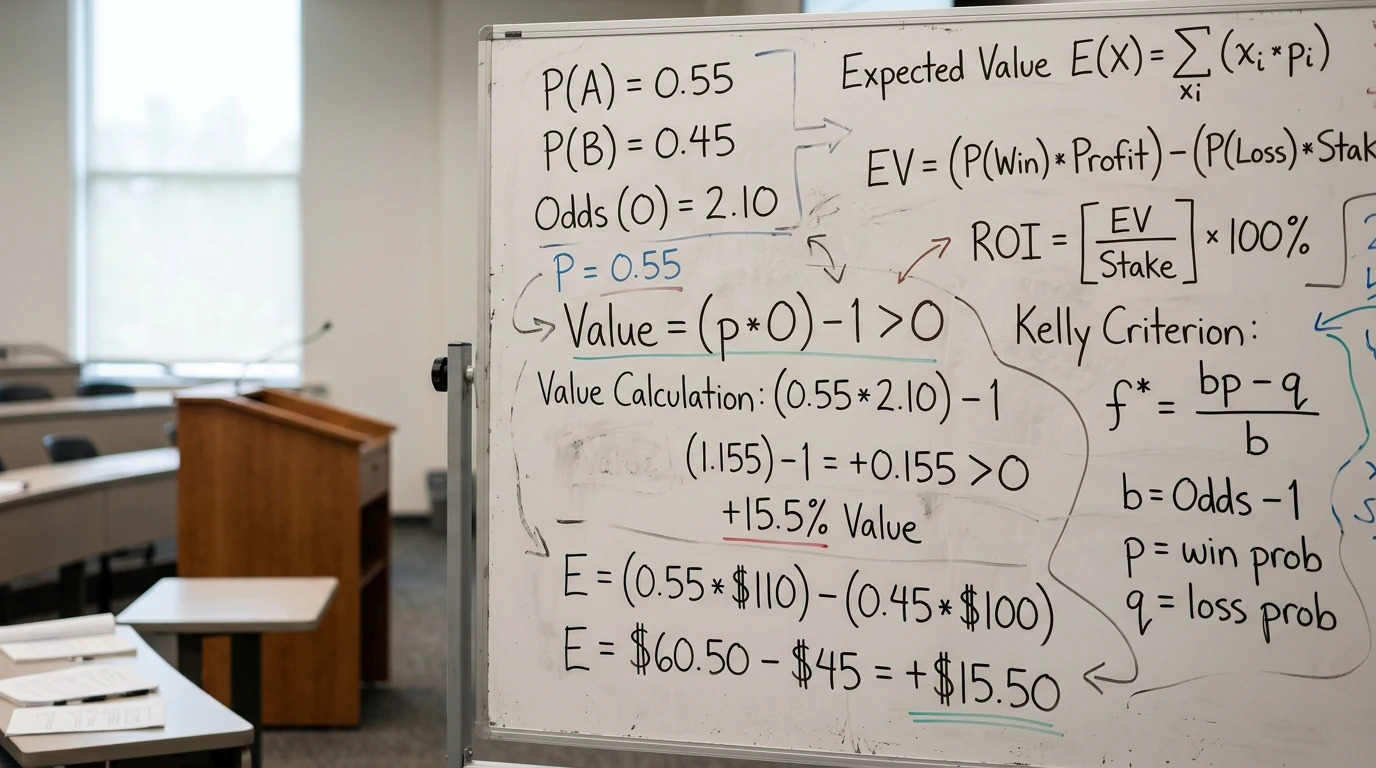 P(A) = 0.55
P(B) = 0.45
Odds (O) = 2.10
P = 0.55
Value = (p*O) - 1 > 0
Value Calculation: (0.55*2.10) - 1
(1.155) - 1 = +0.155 > 0
+15.5% Value
E = (0.55*$110) - (0.45*$100)
E = $60.50 - $45 = +$15.50
Expected Value E(X) = ∑ (xᵢ*pᵢ)
xi
EV = (P(Win)*Profit) - (P(Loss)*Stak
ROI = [EV/Stake] × 100%
Kelly Criterion:
f* = bp - q / b
b = Odds - 1
p = win prob
q = loss prob